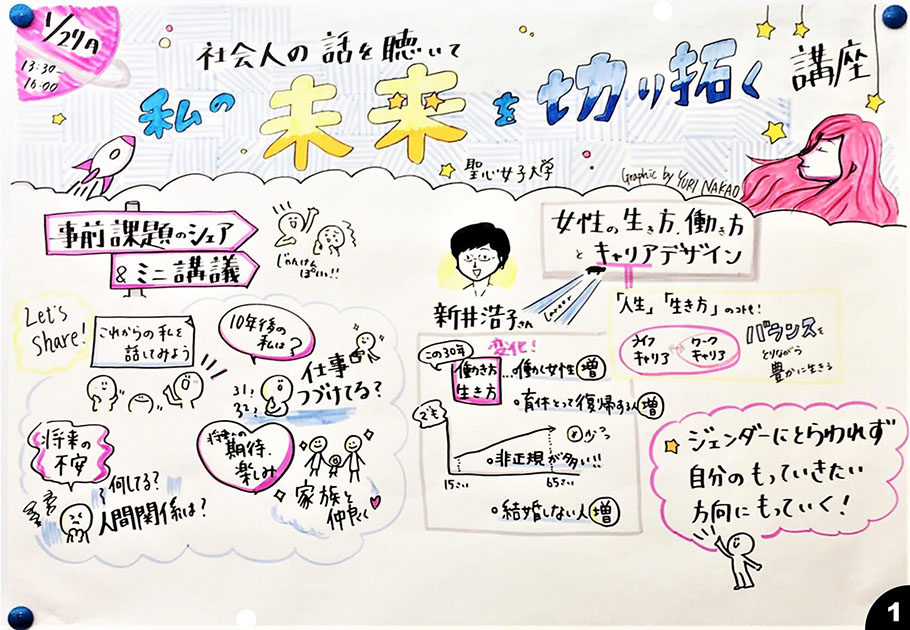 1/27月
13:30-
16:00
社会人の話を聴いて
私の未来を切り拓く
講座
聖心女子大学
Graphic by YURI NAKAO
事前課題のシェア
&ミニ講議
じゃんけん
ぽいっ!!
Let's
Share!
これからの私を
話してみよう
10年後の
私は?
31?
32?
仕事
つづけてる?
将来の
不安
何してる?
人間関係は?
将来の
期待、
楽しみ
家族と
仲良く
新井浩子さん
女性の生き方、働き方
とキャリアデザイン
career
「人生」「生き方」のコト!
ライフ
キャリア
ワーク
キャリア
バランスを
とりながら
豊かに生きる
この30年
変化!
働き方
生き方
…働く女性増
育休とって復帰する人増
でも
非正規が多い!!
15さい
65さい
結婚しない人増
ジェンダーにとらわれず
自分のもっていきたい
方向にもっていく!
1